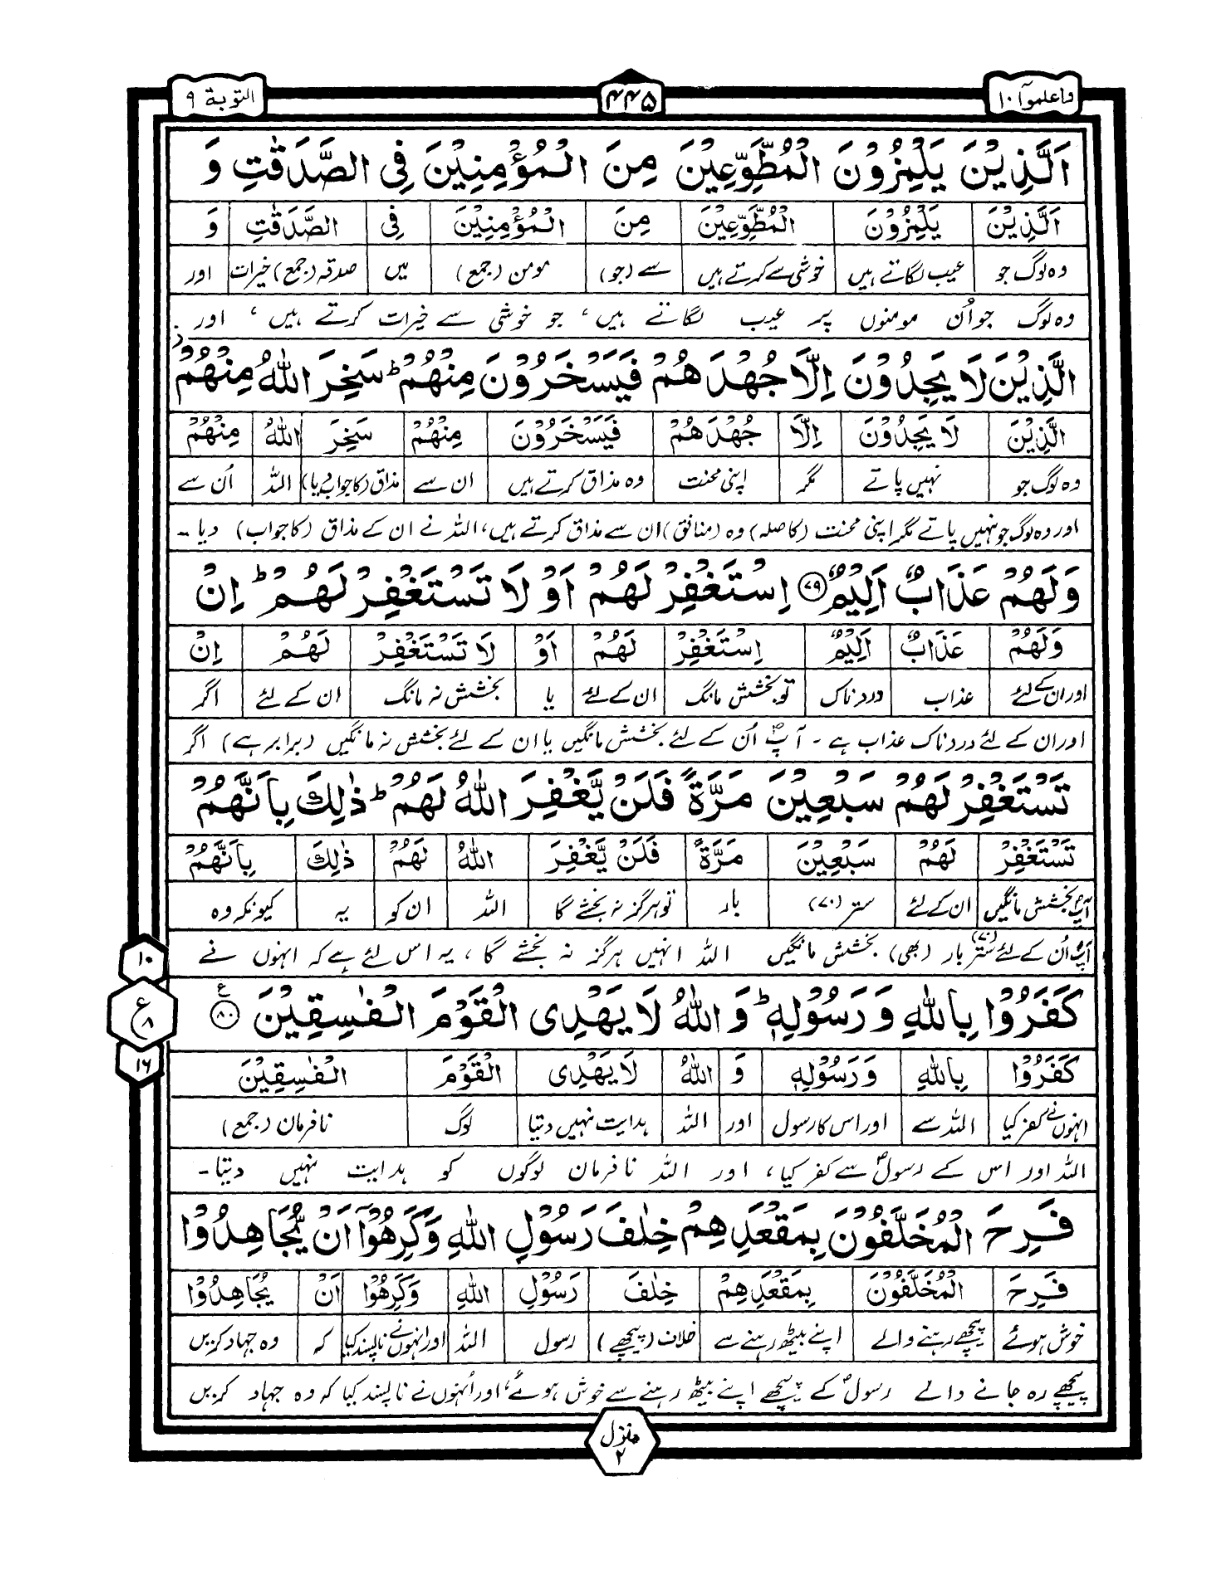 واعلموآ ١٠
۴۴۵
التوبة ٩
اَلَّذِيْنَ يَلْمِزُوْنَ الْمُطَّوِّعِيْنَ مِنَ الْمُؤْمِنِيْنَ فِي الصَّدَقٰتِ وَ
اَلَّذِيْنَ يَلْمِزُوْنَ الْمُطَّوِّعِيْنَ مِنَ الْمُؤْمِنِيْنَ فِي الصَّدَقٰتِ وَ
وہ لوگ جو عیب لگاتے ہیں خوشی سے کرتے ہیں سے (جو) مومن (جمع) میں صدقہ (جمع) خیرات اور
وہ لوگ جو اُن مومنوں پر عیب لگاتے ہیں، جو خوشی سے خیرات کرتے ہیں، اور
الَّذِيْنَ لَا يَجِدُوْنَ اِلَّا جُهْدَهُمْ فَيَسْخَرُوْنَ مِنْهُمْ ؕ سَخِرَ اللّٰهُ مِنْهُمْ ز
الَّذِيْنَ لَا يَجِدُوْنَ اِلَّا جُهْدَهُمْ فَيَسْخَرُوْنَ مِنْهُمْ سَخِرَ اللّٰهُ مِنْهُمْ
وہ لوگ جو نہیں پاتے مگر اپنی محنت وہ مذاق کرتے ہیں ان سے مذاق (کا جواب دیا) اللہ اُن سے
اور وہ لوگ جو نہیں پاتے مگر اپنی محنت (کا صلہ) وہ (منافق) ان سے مذاق کرتے ہیں، اللہ نے ان کے مذاق (کا جواب) دیا۔
وَلَهُمْ عَذَابٌ اَلِيْمٌ ۷۹ اِسْتَغْفِرْ لَهُمْ اَوْ لَا تَسْتَغْفِرْ لَهُمْ ؕ اِنْ
وَلَهُمْ عَذَابٌ اَلِيْمٌ اِسْتَغْفِرْ لَهُمْ اَوْ لَا تَسْتَغْفِرْ لَهُمْ اِنْ
اور ان کے لئے عذاب دردناک تو بخشش مانگ ان کے لئے یا بخشش نہ مانگ ان کے لئے اگر
اور ان کے لئے دردناک عذاب ہے۔ آپؐ اُن کے لئے بخشش مانگیں یا ان کے لئے بخشش نہ مانگیں (برابر ہے) اگر
تَسْتَغْفِرْ لَهُمْ سَبْعِيْنَ مَرَّةً فَلَنْ يَّغْفِرَ اللّٰهُ لَهُمْ ؕ ذٰلِكَ بِاَنَّهُمْ
تَسْتَغْفِرْ لَهُمْ سَبْعِيْنَ مَرَّةً فَلَنْ يَّغْفِرَ اللّٰهُ لَهُمْ ذٰلِكَ بِاَنَّهُمْ
آپؐ بخشش مانگیں ان کے لئے ستر (۷۰) بار تو ہرگز نہ بخشے گا اللہ ان کو یہ کیونکہ وہ
آپؐ اُن کے لئے ستر (۷۰) بار (بھی) بخشش مانگیں اللہ انہیں ہرگز نہ بخشے گا، یہ اس لئے ہے کہ انہوں نے
۱۰
كَفَرُوْا بِاللّٰهِ وَ رَسُوْلِهٖ ؕ وَ اللّٰهُ لَا يَهْدِى الْقَوْمَ الْفٰسِقِيْنَ ۸۰ ع
ع ۸
۱۶
كَفَرُوْا بِاللّٰهِ وَ رَسُوْلِهٖ وَ اللّٰهُ لَا يَهْدِى الْقَوْمَ الْفٰسِقِيْنَ
انہوں نے کفر کیا اللہ سے اور اس کا رسول اور اللہ ہدایت نہیں دیتا لوگ نافرمان (جمع)
اللہ اور اس کے رسولؐ سے کفر کیا، اور اللہ نافرمان لوگوں کو ہدایت نہیں دیتا۔
فَرِحَ الْمُخَلَّفُوْنَ بِمَقْعَدِهِمْ خِلٰفَ رَسُوْلِ اللّٰهِ وَكَرِهُوْۤا اَنْ يُّجَاهِدُوْا
فَرِحَ الْمُخَلَّفُوْنَ بِمَقْعَدِهِمْ خِلٰفَ رَسُوْلِ اللّٰهِ وَكَرِهُوْا اَنْ يُجَاهِدُوْا
خوش ہوئے پیچھے رہنے والے اپنے بیٹھ رہنے سے خلاف (پیچھے) رسول اللہ اور انہوں نے ناپسند کیا کہ وہ جہاد کریں
پیچھے رہ جانے والے رسولؐ کے پیچھے اپنے بیٹھ رہنے سے خوش ہوئے، اور اُنہوں نے ناپسند کیا کہ وہ جہاد کریں
منزل ۲